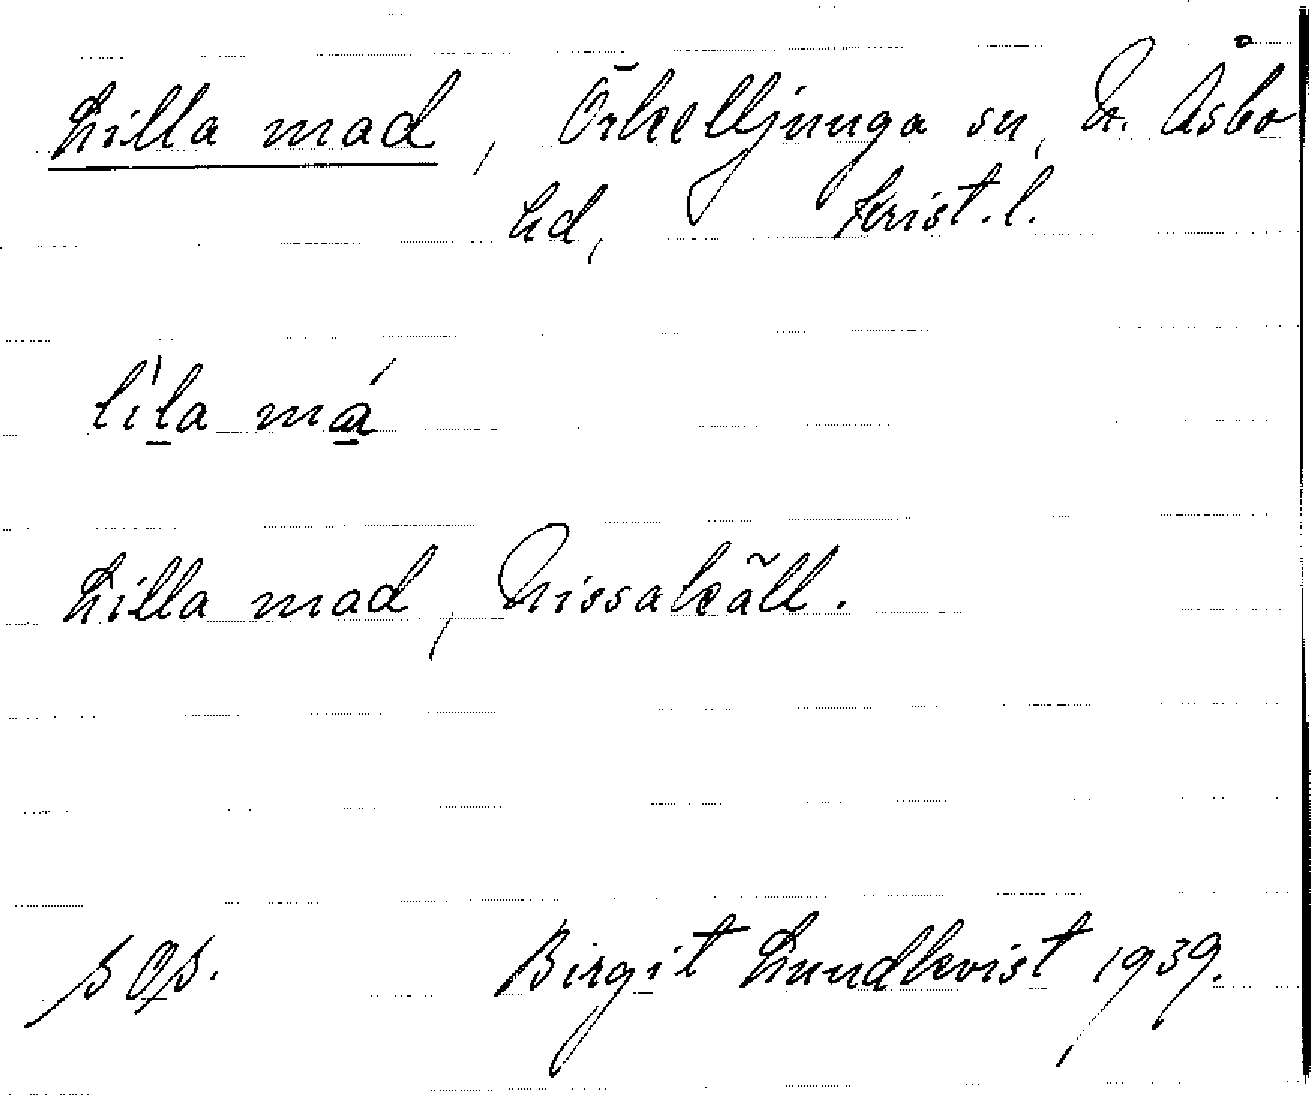 Lilla mad, Örkelljunga sn, N. Åsbo
hd, Krist. l.
lìla má
Lilla mad, Nissakäll.
Birgit Lundkvist 1939.